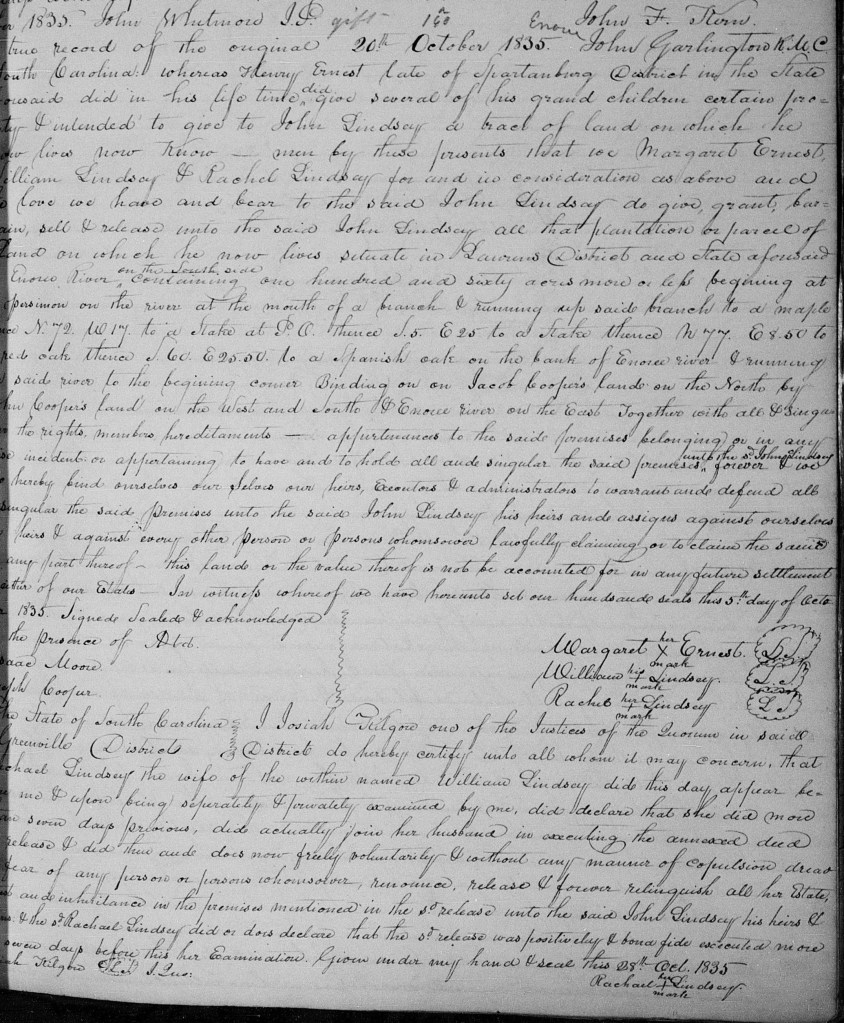 1835. John Whitmore J.P. gift 160 Enoree John F. Kern.
true record of the original 20th October 1835. John Garlington R.M.C.
South Carolina: whereas Henry Ernest late of Spartanburg District in the State
did in his life time did give several of his grand children certain pro-
& intended to give to John Lindsey a tract of land on which he
lives now Know — men by these presents that we Margaret Ernest,
William Lindsay & Rachel Lindsay for and in consideration as above and
love we have and bear to the said John Lindsay do give, grant, bar-
sell & release unto the said John Lindsay all that plantation or parcel of
land on which he now lives situate in Laurens District and State aforesaid
Enoree River on the South side Containing one hundred and sixty acres more or less begining at
persimon on the river at the mouth of a branch & running up said branch to a maple
N. 72. W 17. to a Stake at P.O. thence S. 5. E 25 to a Stake thence N 77. E 8.50 to
red oak thence S. 60. E 25.50. to a Spanish oak on the bank of Enoree river & running
said river to the begining corner Binding on on Jacob Cooper's lands on the North by
Cooper's land on the West and South & Enoree river on the East Together with all & singu
the rights, members, hereditaments — appurtenances to the said premises belonging or in any
incident or appertaining to have and to hold all ande singular the said premises unto the sd. John Lindsay forever & we
hereby bind ourselves our Selves our heirs, Executors & administrators to warrant ande defend all
singular the said premises unto the said John Lindsey his heirs ande assigns against ourselves
heirs & against every other person or persons whomsower lawfully claiming or to claim the same
any part thereof — this lande or the value thereof is not be accounted for in any future settlement
either of our Estates — In witness whereof we have hereunto set our hands ande seals this 5th day of Octo
1835. Signede Sealede & acknowledged
the presence of
Isaac Moore.
Cooper.
Margaret her X mark Ernest. L.S.
William his X mark Lindsey. L.S.
Rachel her X mark Lindsey L.S.
The State of South Carolina I Josiah Kilgore one of the Justices of the Quorum in said
Greenville District District do hereby certify unto all whom it may concern, that
Rachael Lindsey the wife of the within named William Lindsey dide this day appear be-
me & upon being seperately & privately examined by me, did declare that she did more
seven days previous, did actually join her husband in executing the annexed deed
release & did then ande does now freely voluntarily & without any manner of copulsion dread
fear of any person or persons whomsoever, renounce, release & forever relinquish all her Estate,
ande inheritance in the premises mentioned in the sd. release unto the said John Lindsay his heirs &
& the sd. Rachael Lindsey did or does declare that the sd. release was positively & bona fide executed more
seven days before this her Examination. Given under my hand & seal this 28th Oct. 1835
Kilgore J. Quo: Rachael her X mark Lindsey.